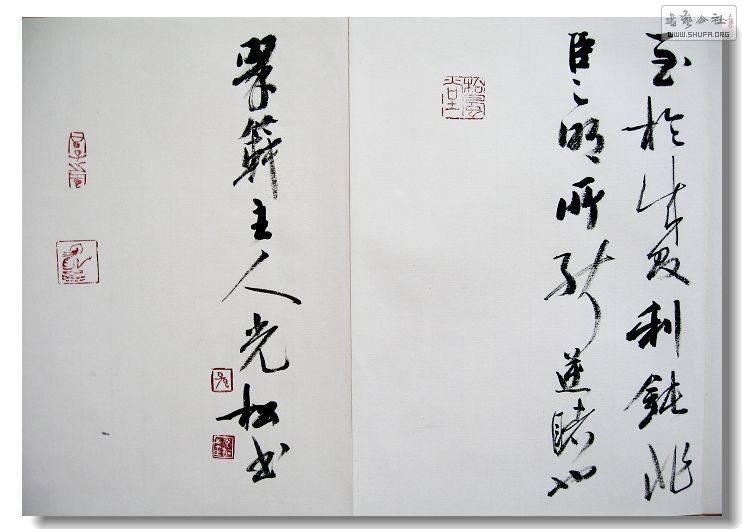 书艺公社
WWW.SHUFA.ORG
至於成敗利鈍非
臣之明所能逆睹也
主人光松书